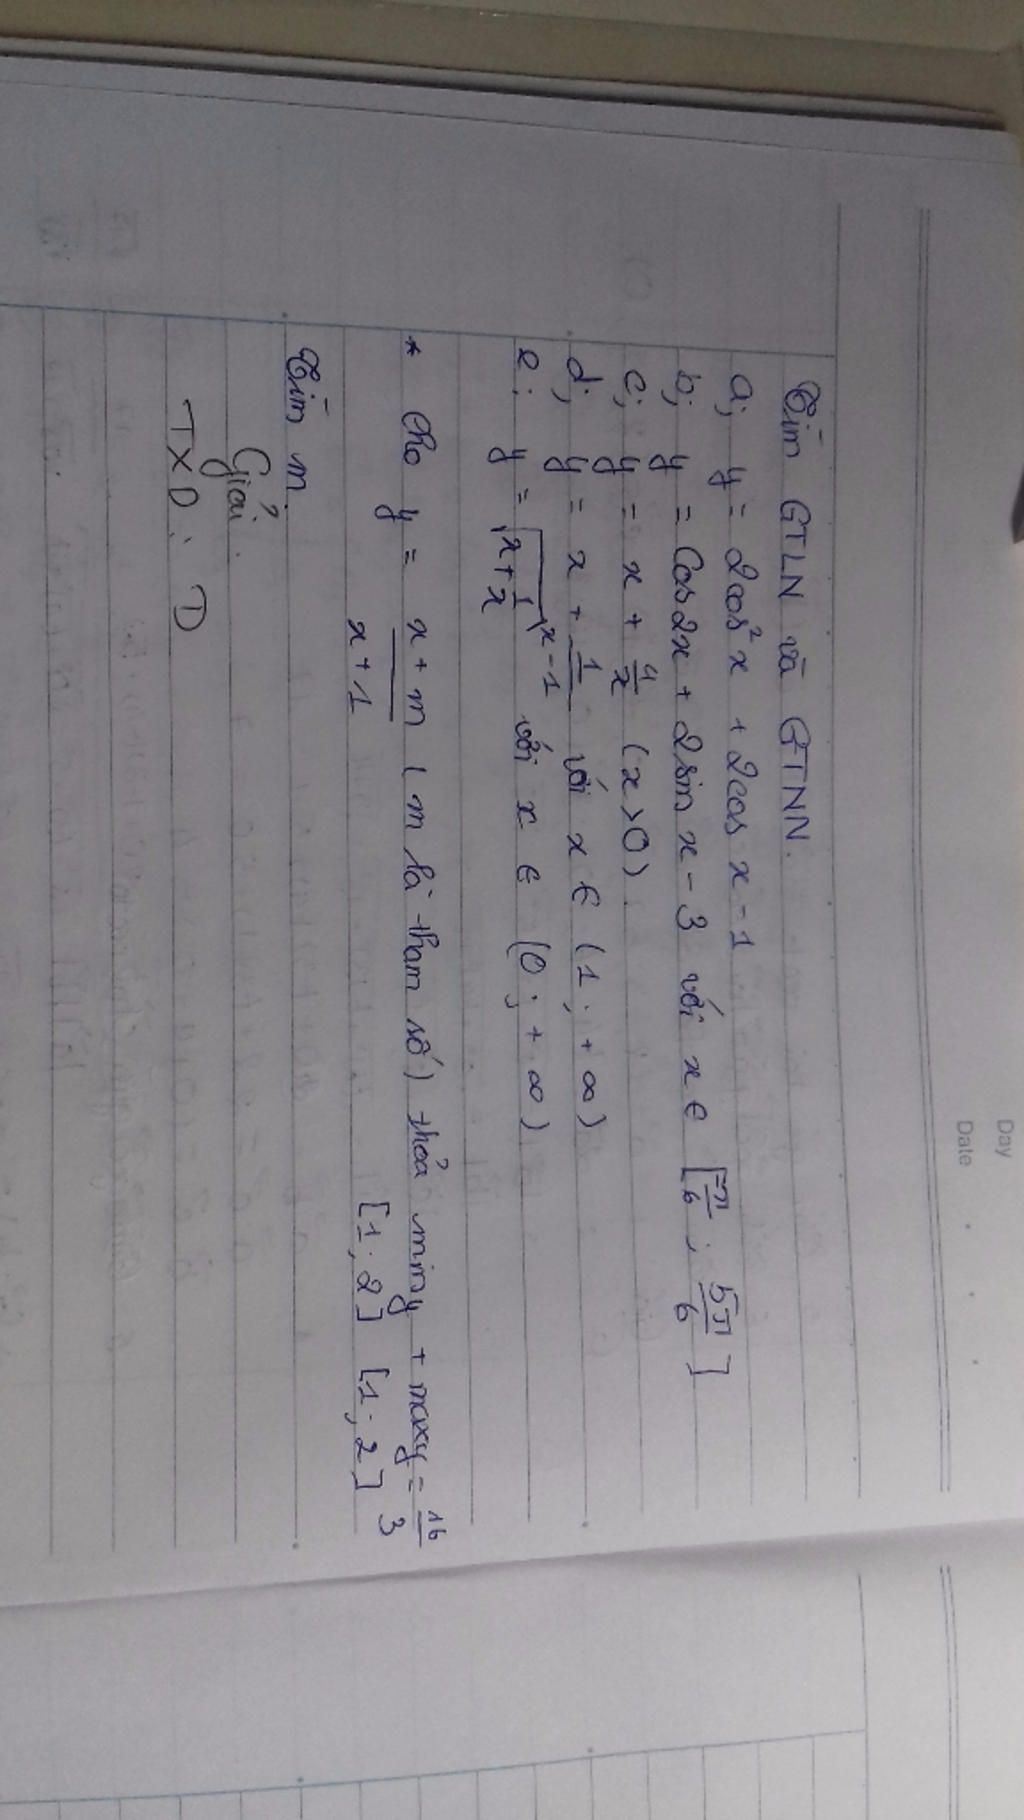 Day
Date
Tìm GTLN và GTNN.
a; y = 2cos²x + 2cos x - 1
b; y = cos2x + 2sin x - 3 với x ∈ [-π/6 ; 5π/6]
c; y = x + 4/x (x > 0)
d; y = x + 1/(x-1) với x ∈ (1; +∞)
e; y = √(x + 1/x) với x ∈ (0; +∞)
* Cho y = (x+m)/(x+1) (m là tham số) thỏa min y + max y = 16/3
[1; 2] [1; 2]
Tìm m.
Giải.
TXD: D